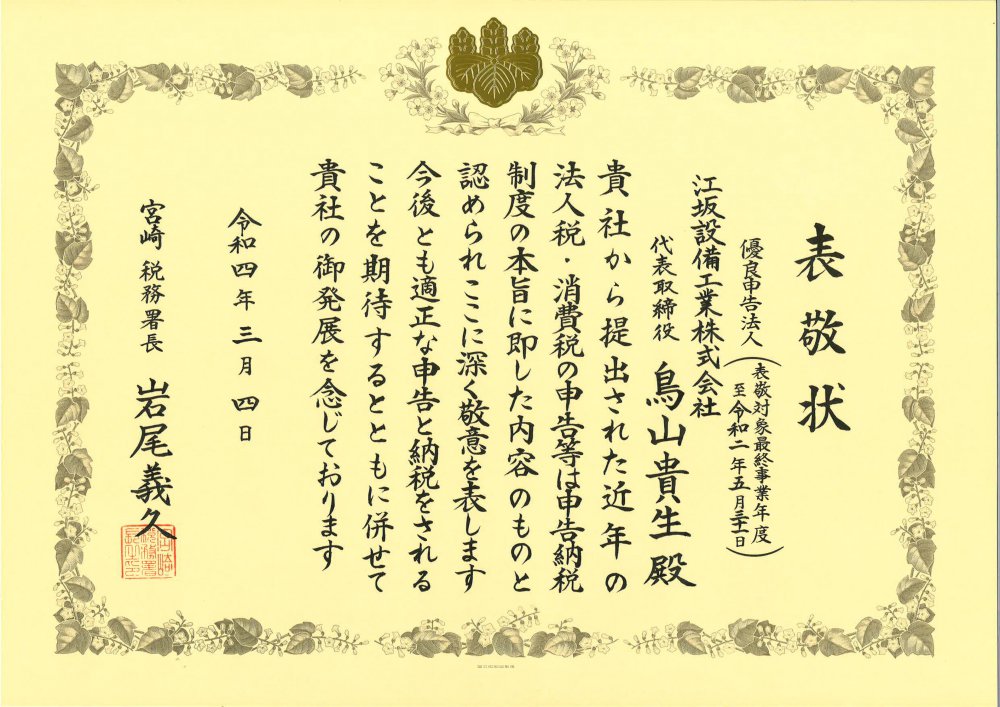 表敬状
優良申告法人
(表敬対象最終事業年度
至令和二年五月三十一日)
江坂設備工業株式会社
代表取締役 鳥山貴生殿
貴社から提出された近年の
法人税・消費税の申告等は申告納税
制度の本旨に即した内容のものと
認められここに深く敬意を表します
今後とも適正な申告と納税をされる
ことを期待するとともに併せて
貴社の御発展を念じております
令和四年三月四日
宮崎税務署長 岩尾義久
宮崎税務署長之印